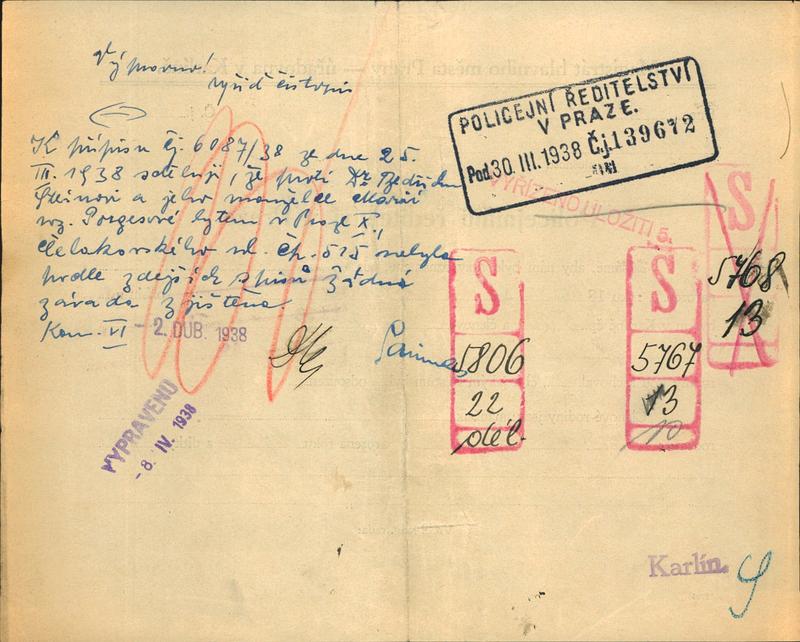 vyřiď čistopis
K přípisu čj. 6087/38 ze dne 25.
III. 1938 sděluji, že proti Dr Bedřichu
Steinovi a jeho manželce Marii
roz. Porgesové bytem v Praze X.,
Čelakovského ul. čp. 515 nebyla
podle zdejších spisů žádná
závada zjištěna
Kom. VI
- 2. DUB. 1938
VYPRAVENO
- 8. IV. 1938
POLICEJNÍ ŘEDITELSTVÍ
V PRAZE.
Pod. 30. III. 1938 Čj. 139672
VYŘÍZENO ULOŽITI 5.
S
5806
22
děl.
S
5767
13
10
S
5768
13
Karlín.